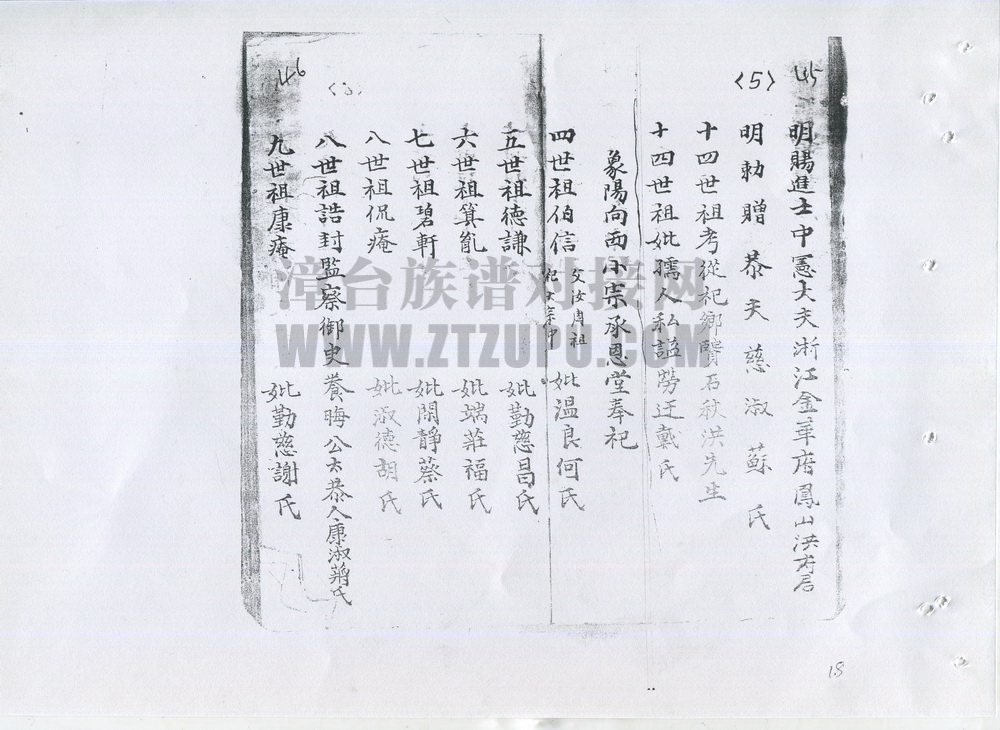 45
〈5〉
明賜進士中憲大夫浙江金華府鳳山洪府君
明勅贈恭夫慈淑蘇氏
十四世祖考從祀鄉賢石秋洪先生
十四世祖妣孺人私謚勞迂戴氏
象陽向西小宗承恩堂奉祀
四世祖伯信 妣温良何氏
五世祖德謙 妣勤慈昌氏
六世祖箕 妣端莊福氏
七世祖碧軒 妣閑靜蔡氏
八世祖侃庵 妣淑德胡氏
八世祖誥封監察御史養晦公太恭人康淑蔣氏
九世祖康庵 妣勤慈謝氏
46
漳台族谱对接网
WWW.ZTZUPU.COM
18